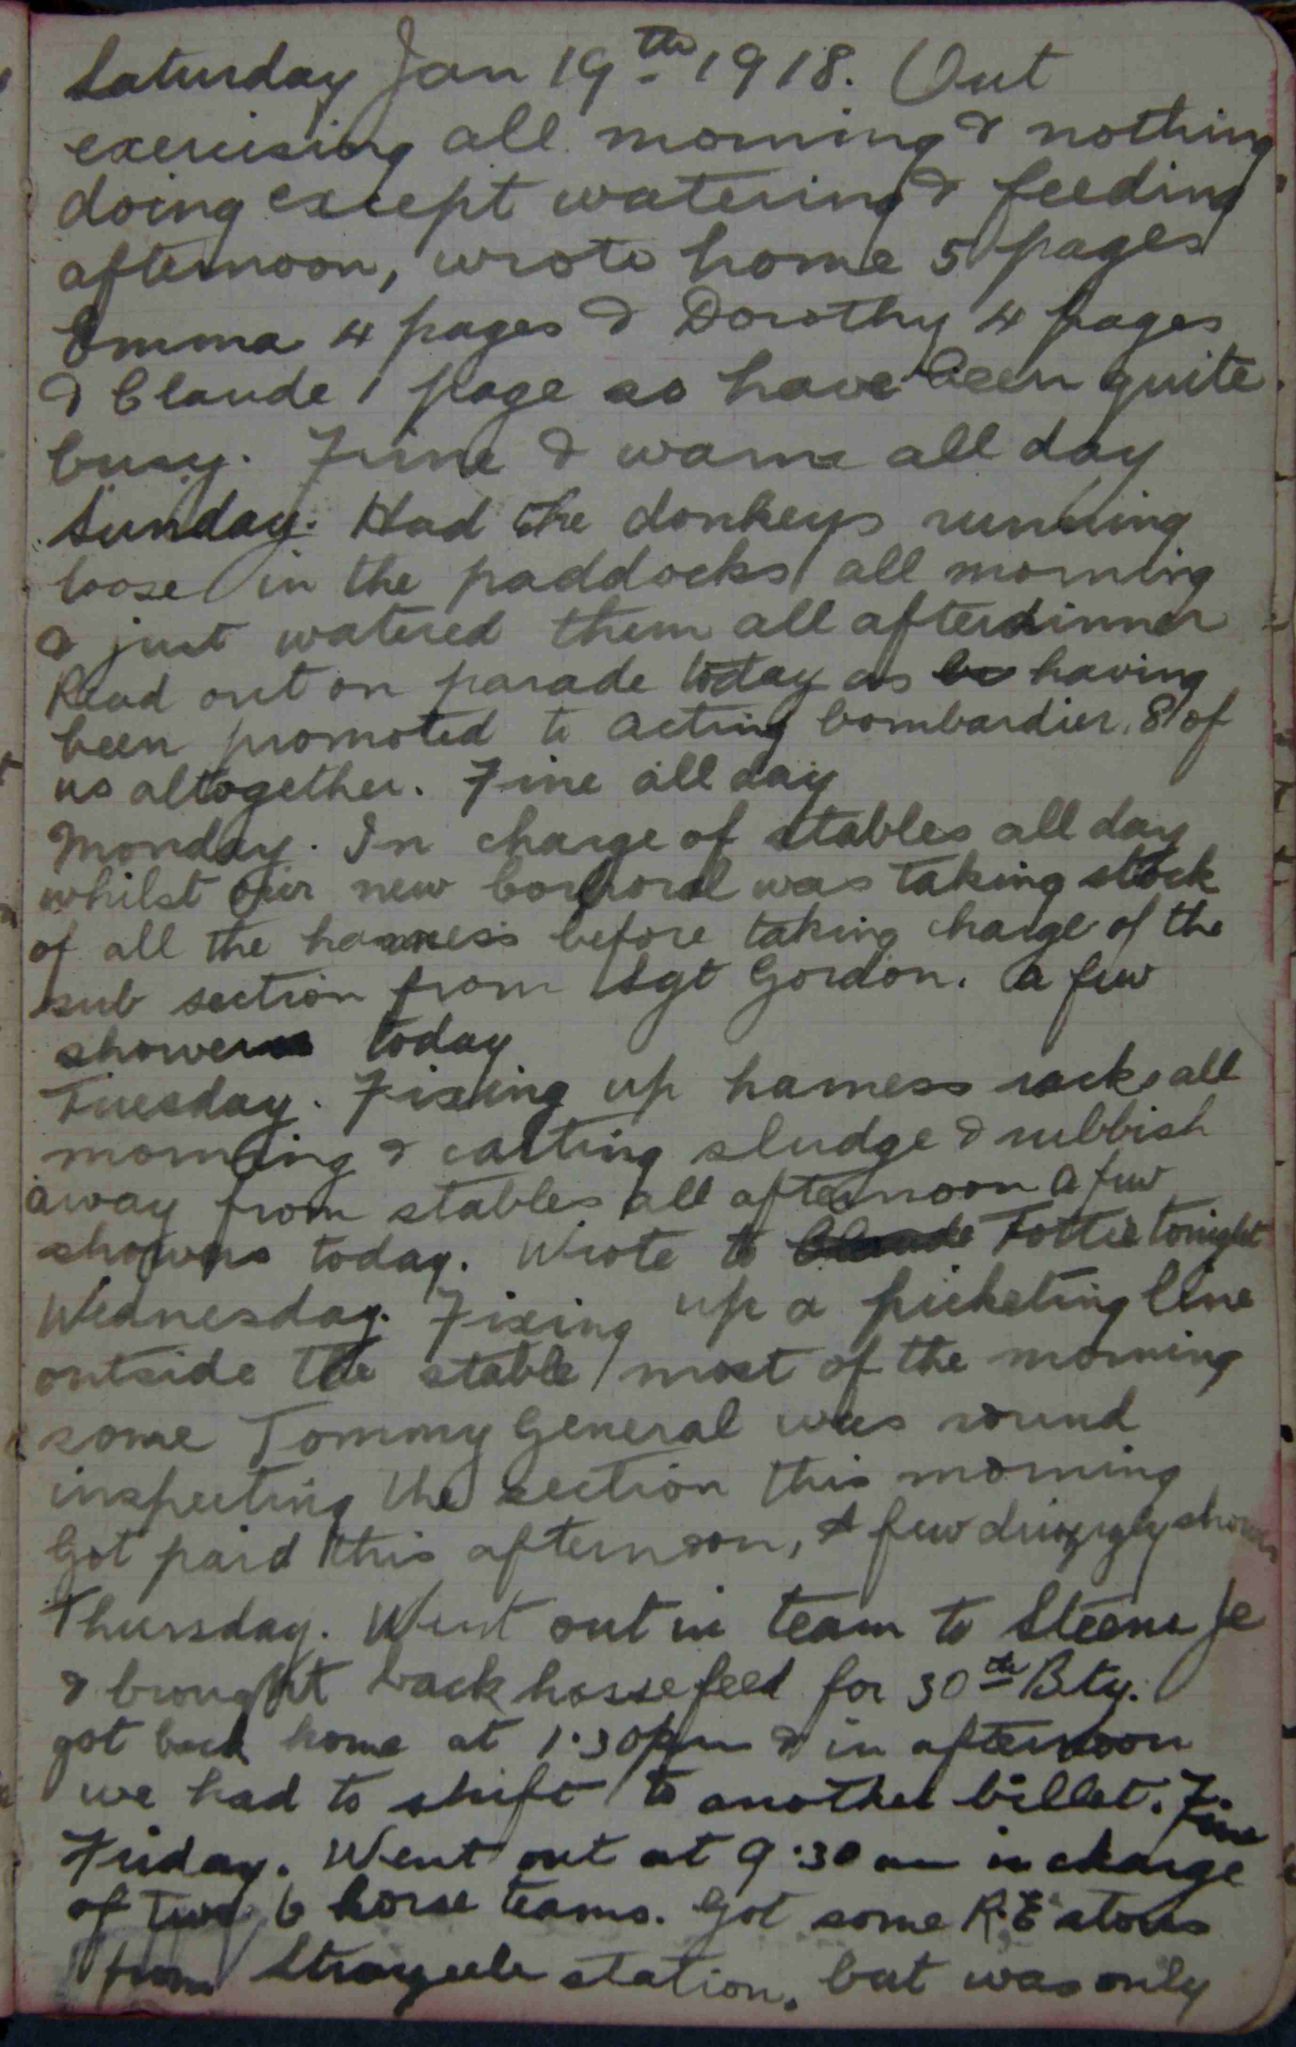 Saturday Jan 19th 1918. Out
exercising all morning & nothing
doing except watering & feeding
afternoon, wrote home 5 pages
Emma 4 pages & Dorothy 4 pages
& Claude 1 page so have been quite
busy. Fine & warm all day
Sunday. Had the donkeys running
loose in the paddocks all morning
& just watered them all after dinner
Read out on parade today as having
been promoted to acting bombardier. 8 of
us altogether. Fine all day
Monday. In charge of stables all day
whilst our new Corporal was taking stock
of all the harness before taking charge of the
sub section from Sgt Gordon. A few
showers today
Tuesday. Fixing up harness racks all
morning & carting sludge & rubbish
away from stables all afternoon a few
showers today. Wrote to Claude Tottie tonight
Wednesday. Fixing up a picketing line
outside the stable most of the morning
some Tommy General was round
inspecting the section this morning
Got paid this afternoon, A few drizzly showers
Thursday. Went out in team to Steenje
& brought back horse feed for 30th Bty.
got back home at 1.30pm & in afternoon
we had to shift to another billet. Fine
Friday. Went out at 9.30 am in charge
of two 6 horse teams. Got some R.E stores
from station, but was only